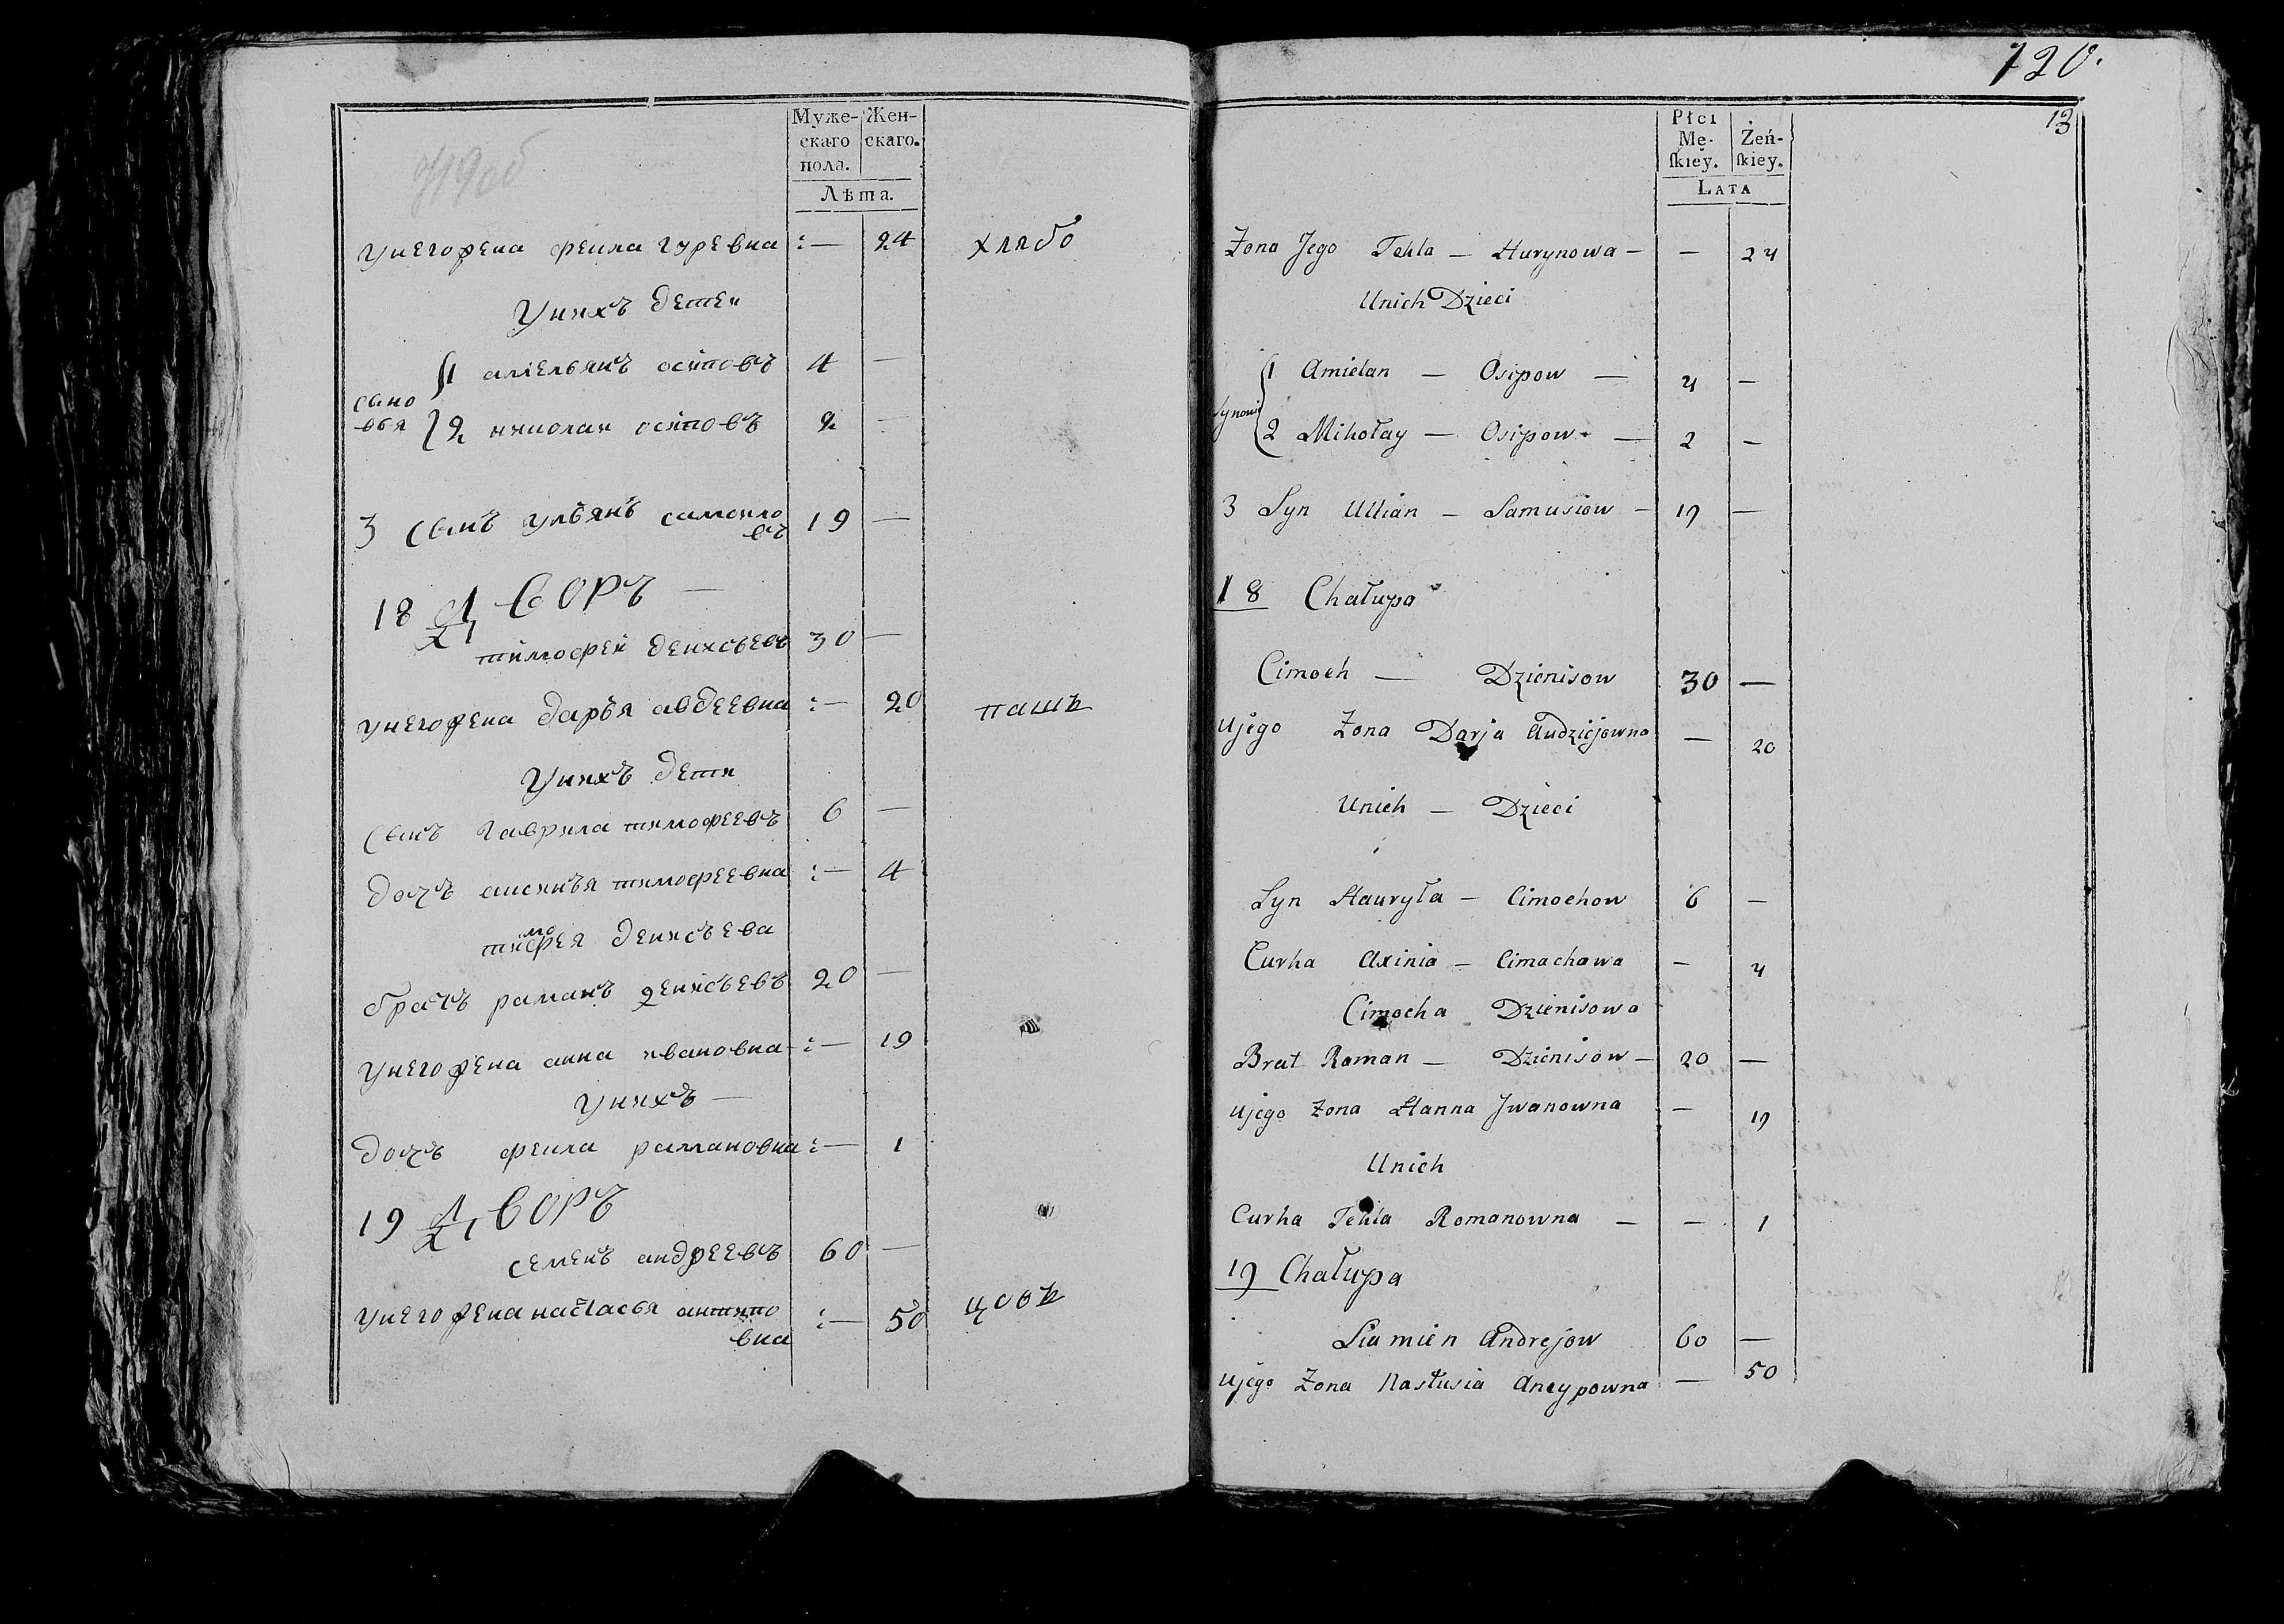 719об
Муже-
скаго
пола.
Жен-
скаго.
Лѣта.
унегожена фекла гуревна :— 24 хлябо
унихъ детей
сыно
вья
1 амельянъ осиповъ 4 —
2 николаи осиповъ 2 —
3 сынъ ульянъ самоило
въ 19 —
18 дворъ —
тимофеи денисьевъ 30 —
унегожена дарья авдеевна :— 20 пашъ
унихъ дети
сынъ гаврила тимофеевъ 6 —
дочъ аксинья тимофеевна :— 4
тимофея денисьева
братъ раманъ денисьевъ 20 —
унегожена анна ивановна :— 19
унихъ —
дочъ фекла рамановна :— 1
19 дворъ
семенъ андреевъ 60 —
унегожена настасья антипо
вна :— 50
120.
13
Płci
Mę-
skiey.
Żeń-
skiey.
LATA
Zona Jego Tekla — Hurynowa — — 24
Unich Dzieci
Synowi
1 Amielan — Osipow — 4 —
2 Mikołay — Osipow — 2 —
3 Syn Ullian — Samusiow — 19 —
18 Chałupa
Cimoch — Dzienisow 30 —
ujego Zona Darja Audziejowna — 20
Unich — Dzieci
Syn Hauryła — Cimochow 6 —
Curka Axinia — Cimachawa — 4
Cimocha Dzienisowa
Brat Raman — Dzienisow — 20 —
ujego Zona Hanna Jwanowna — 19
Unich
Curka Tekla Romanowna — — 1
19 Chałupa
Siamien Andrejow 60 —
ujego Zona Nastusia Ancypowna — 50